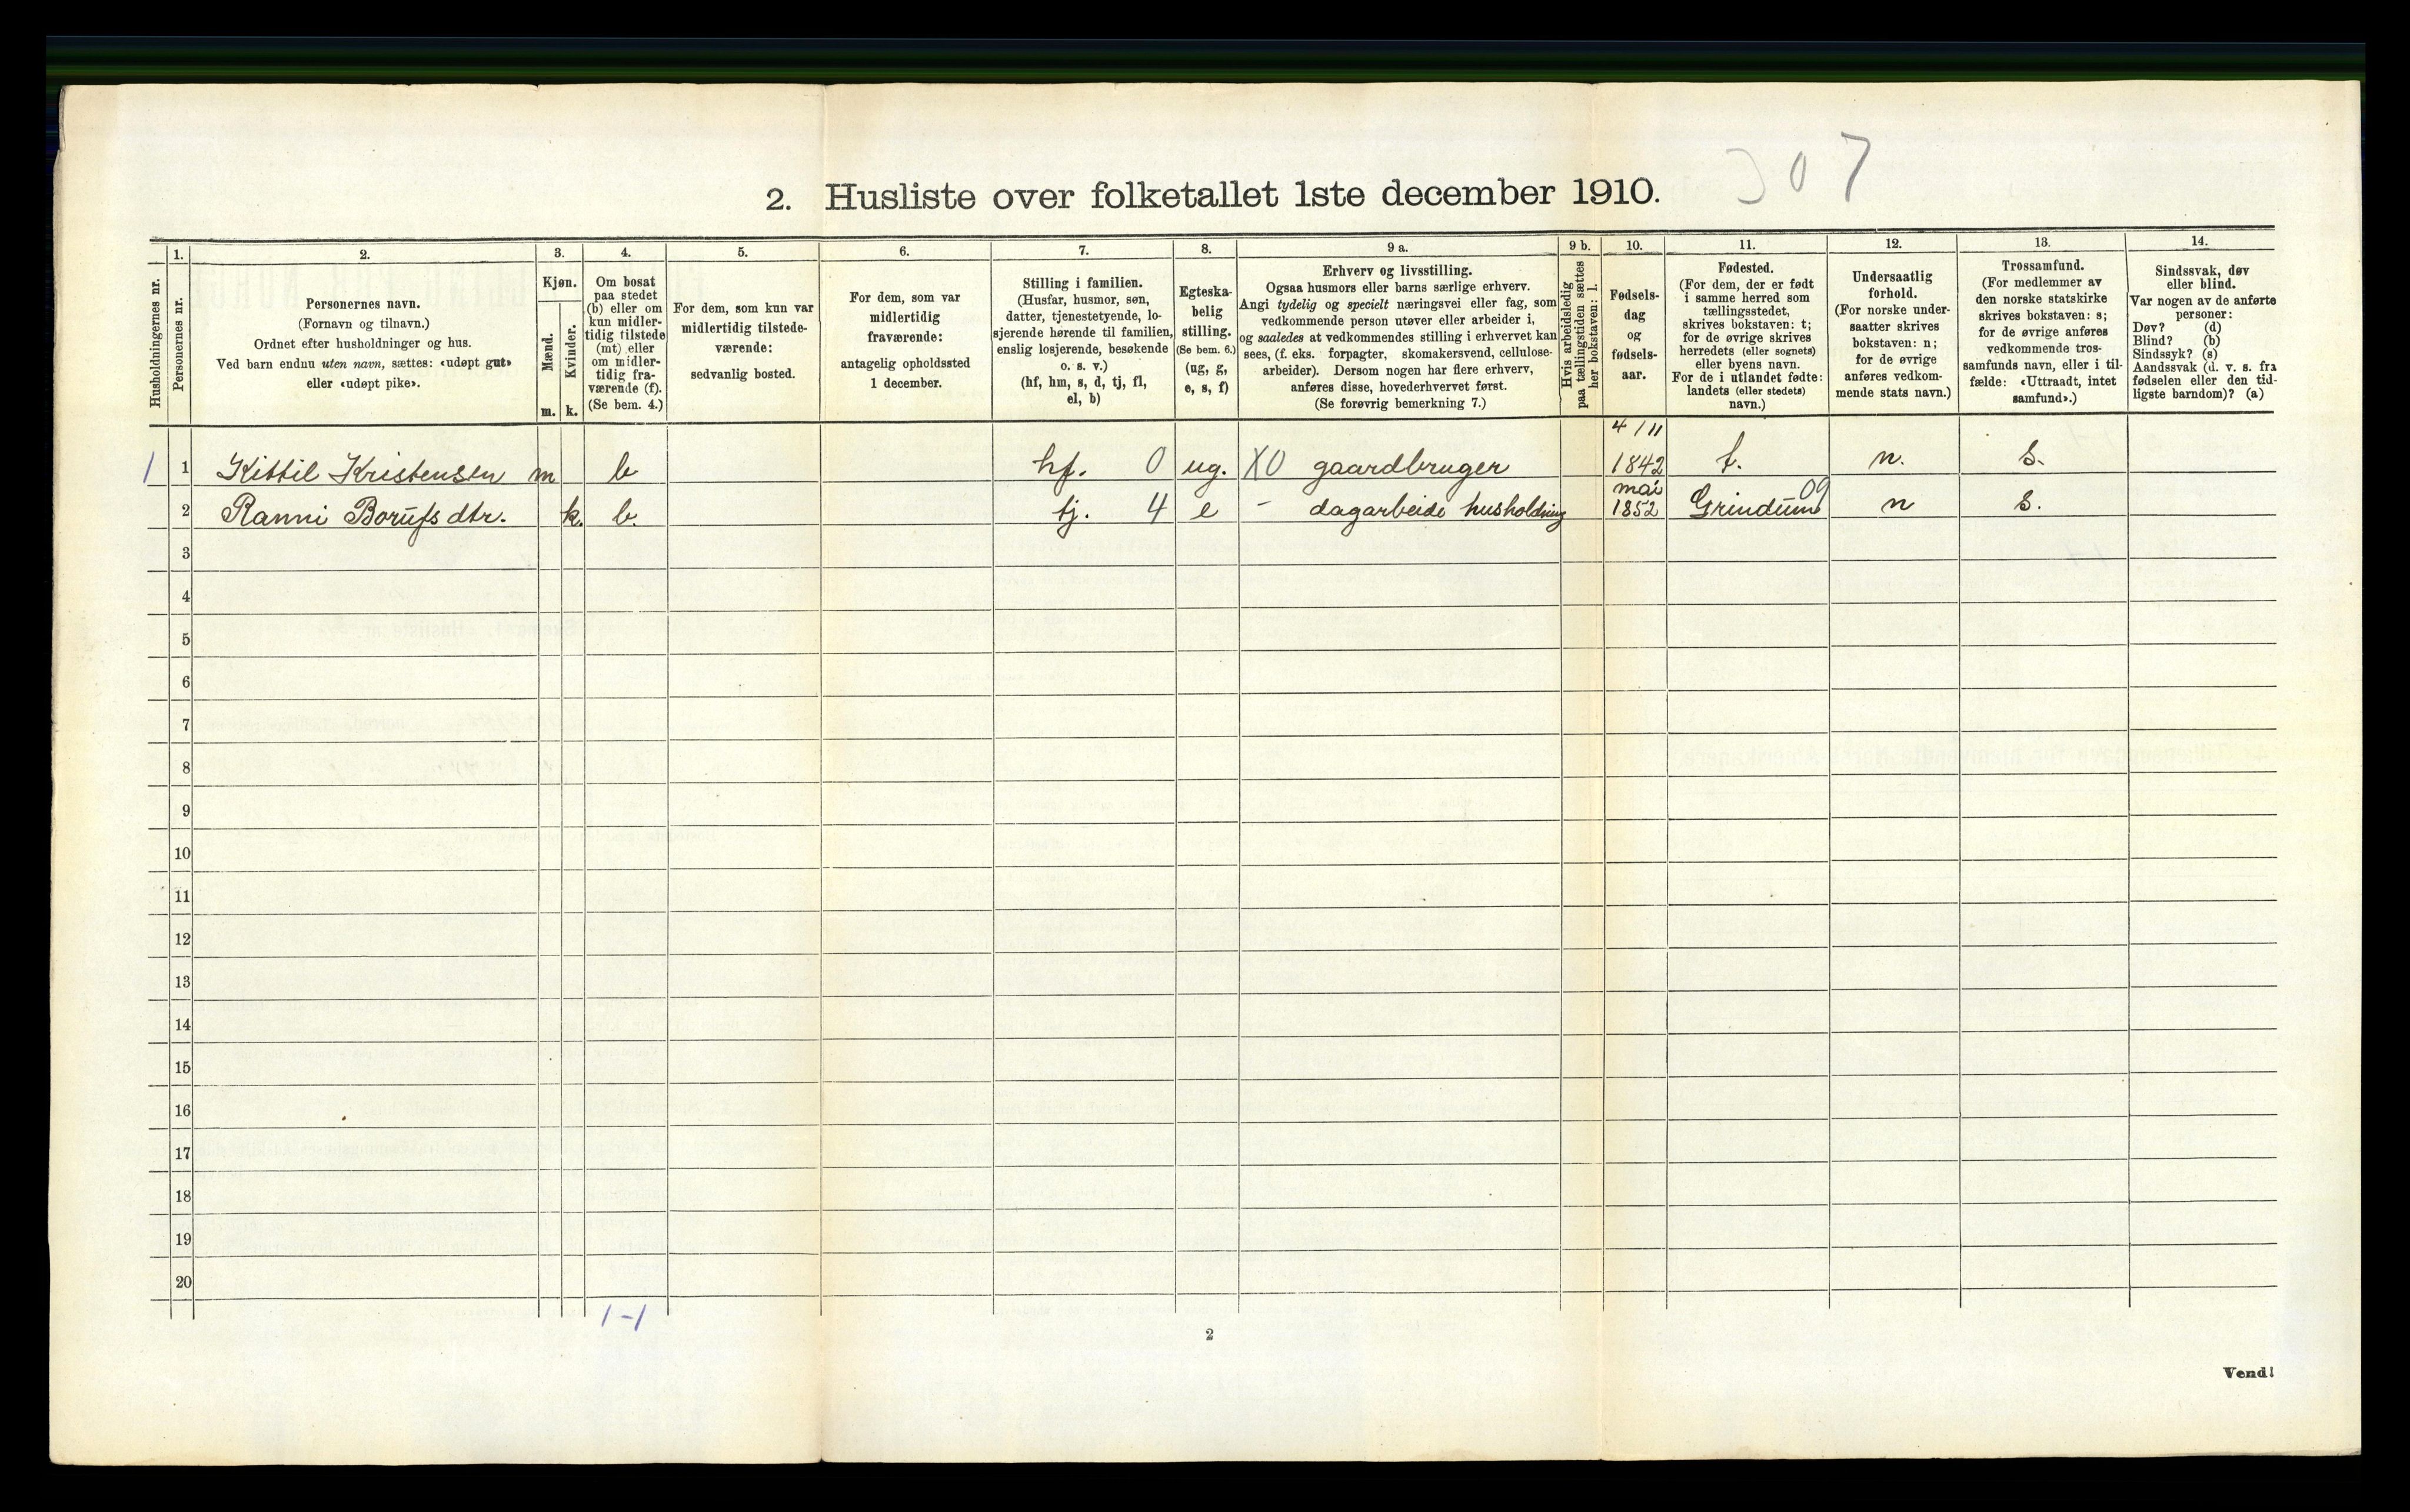 307
2. Husliste over folketallet 1ste december 1910.
Husholdningernes nr.
1.
Personernes nr.
2.
Personernes navn.
(Fornavn og tilnavn.)
Ordnet efter husholdninger og hus.
Ved barn endnu uten navn, sættes: «udøpt gut»
eller «udøpt pike».
3.
Kjøn.
Mænd.
Kvinder.
m. k.
4.
Om bosat
paa stedet
(b) eller om
kun midler-
tidig tilstede
(mt) eller
om midler-
tidig fra-
værende (f).
(Se bem. 4.)
5.
For dem, som kun var
midlertidig tilstede-
værende:
sedvanlig bosted.
6.
For dem, som var
midlertidig
fraværende:
antagelig opholdssted
1 december.
7.
Stilling i familien.
(Husfar, husmor, søn,
datter, tjenestetyende, lo-
sjerende hørende til familien,
enslig losjerende, besøkende
o. s. v.)
(hf, hm, s, d, tj, fl,
el, b)
8.
Egteska-
belig
stilling.
(Se bem. 6.)
(ug, g,
e, s, f)
9 a.
Erhverv og livsstilling.
Ogsaa husmors eller barns særlige erhverv.
Angi tydelig og specielt næringsvei eller fag, som
vedkommende person utøver eller arbeider i,
og saaledes at vedkommendes stilling i erhvervet kan
sees, (f. eks. forpagter, skomakersvend, cellulose-
arbeider). Dersom nogen har flere erhverv,
anføres disse, hovederhvervet først.
(Se forøvrig bemerkning 7.)
9 b.
Hvis arbeidsledig
paa tællingstiden sættes
her bokstaven: l.
10.
Fødsels-
dag
og
fødsels-
aar.
11.
Fødested.
(For dem, der er født
i samme herred som
tællingsstedet,
skrives bokstaven: t;
for de øvrige skrives
herredets (eller sognets)
eller byens navn.
For de i utlandet fødte:
landets (eller stedets)
navn.)
12.
Undersaatlig
forhold.
(For norske under-
saatter skrives
bokstaven: n;
for de øvrige
anføres vedkom-
mende stats navn.)
13.
Trossamfund.
(For medlemmer av
den norske statskirke
skrives bokstaven: s;
for de øvrige anføres
vedkommende tros-
samfunds navn, eller i til-
fælde: «Uttraadt, intet
samfund».)
14.
Sindssvak, døv
eller blind.
Var nogen av de anførte
personer:
Døv? (d)
Blind? (b)
Sindssyk? (s)
Aandssvak (d. v. s. fra
fødselen eller den tid-
ligste barndom)? (a)
4/11
1 1 Kittil Kristensen m b hf. 0 ug. X0 gaardbruger 1842 t. n. s.
mai 09
2 Ranni Borufsdtr. k. b. tj. 4 e - dagarbeide husholdning 1852 Grindum n s.
3
4
5
6
7
8
9
10
11
12
13
14
15
16
17
18
19
20
1-1
2
Vend!